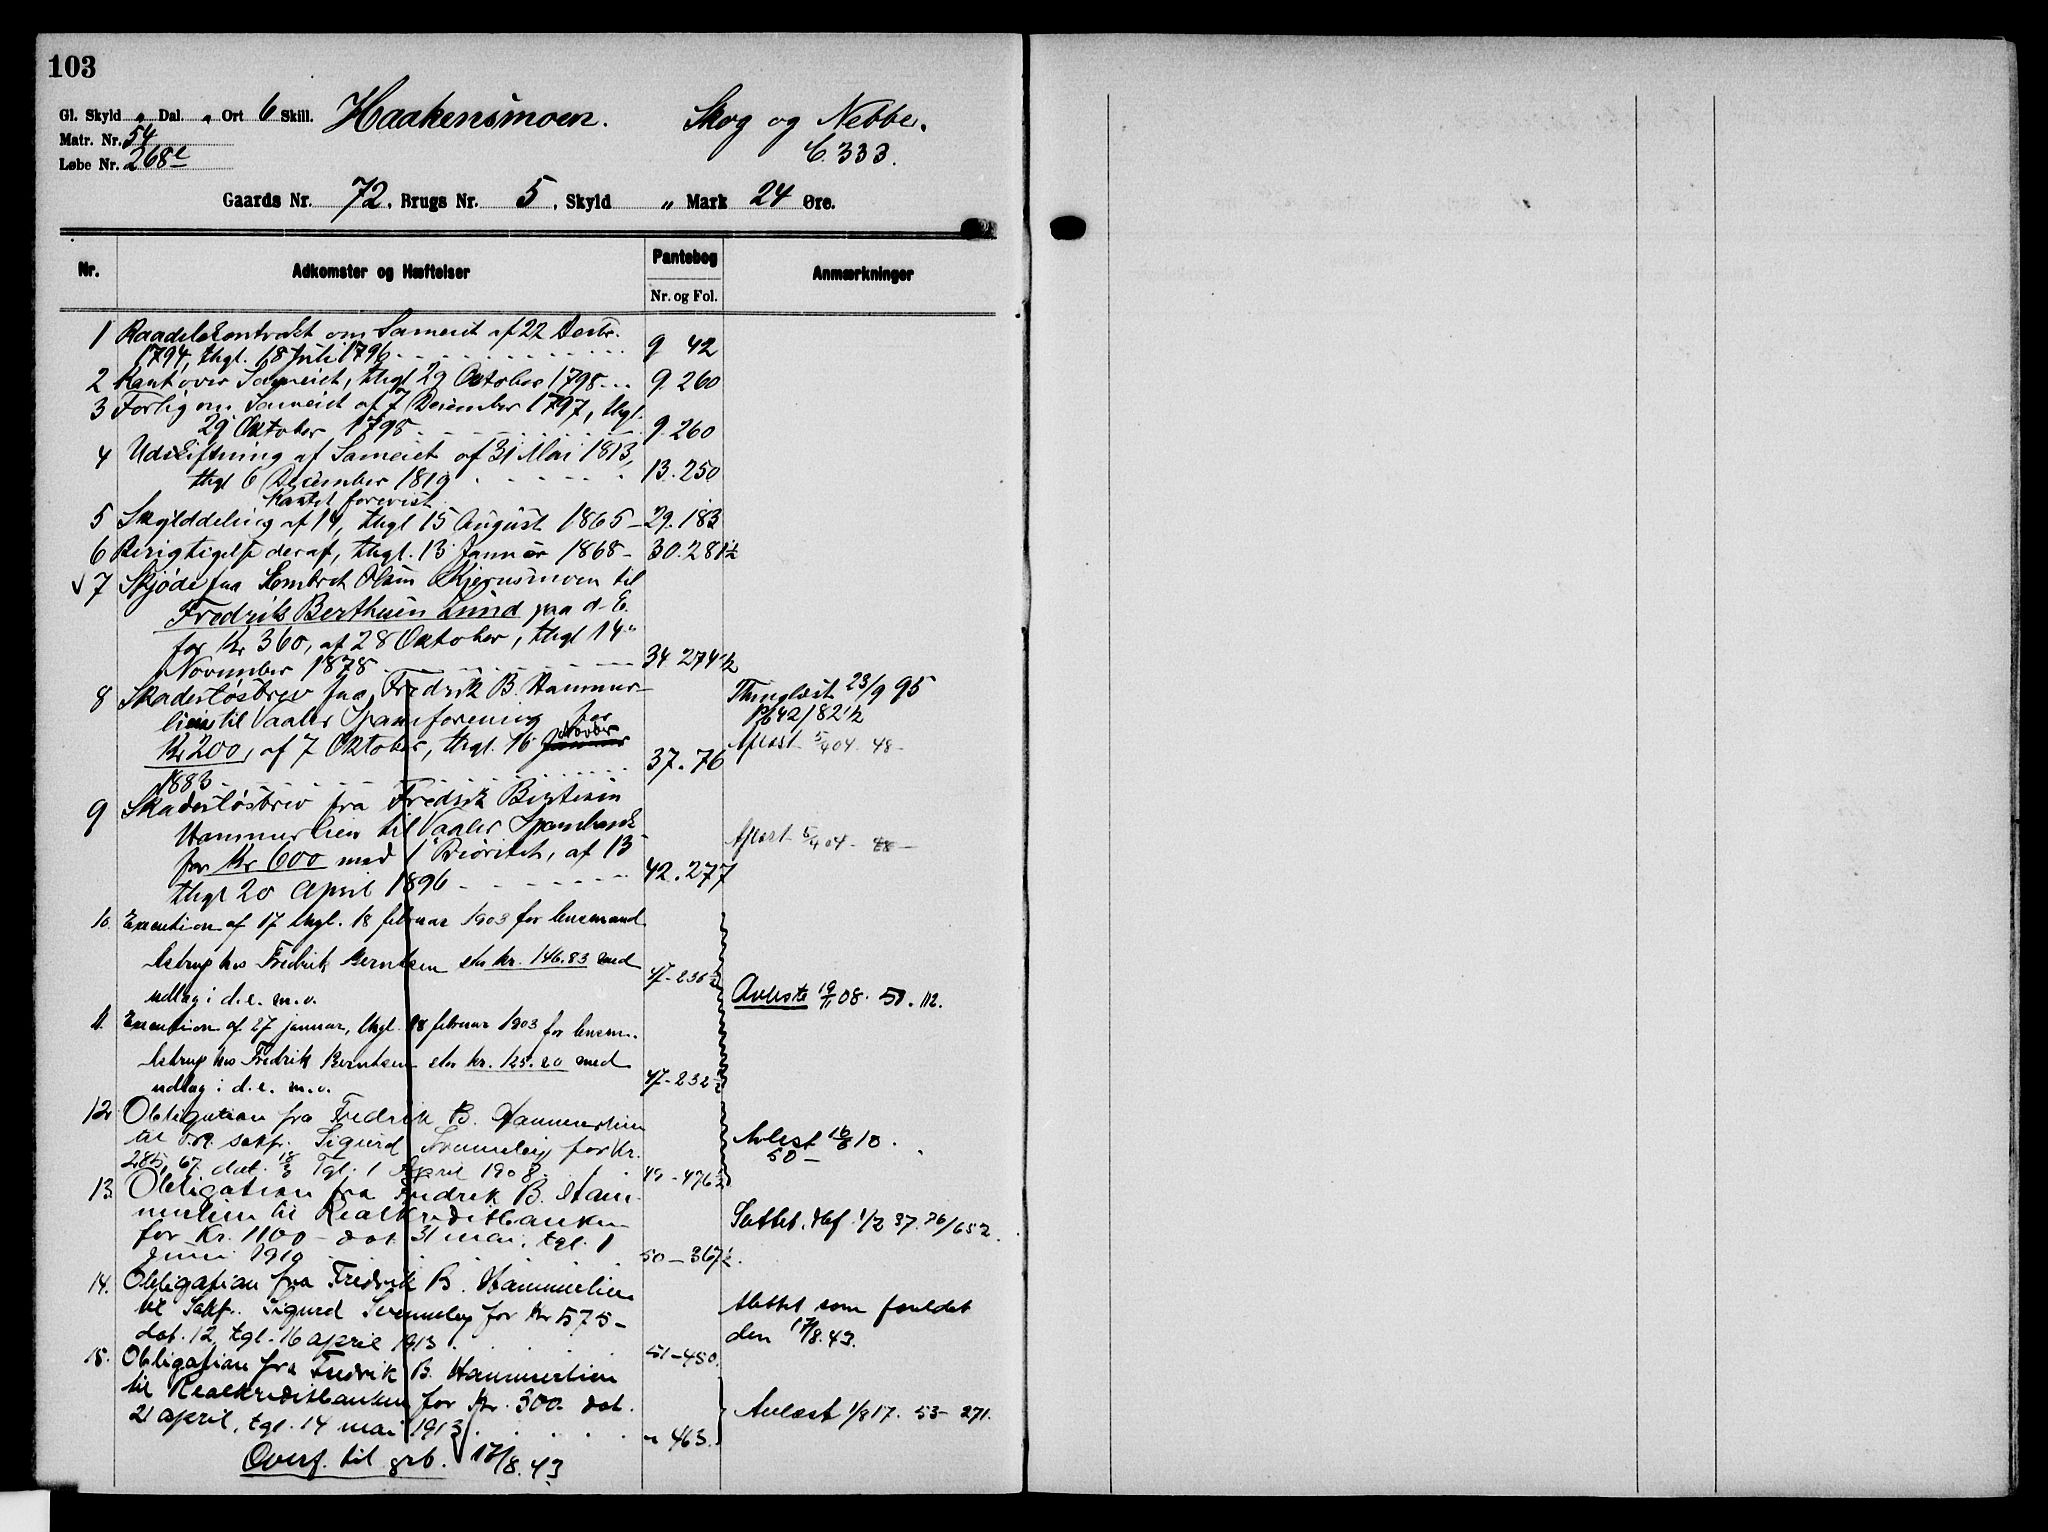 103
Gl. Skyld " Dal. " Ort 6 Skill. Haakensmoen. Skog og Nebbe.
Matr. Nr. 54
Løbe Nr. 268e 6.333.
Gaards Nr. 72, Brugs Nr. 5, Skyld " Mark 24 Øre.
Nr. Adkomster og Hæftelser Pantebog Anmærkninger
Nr. og Fol.
1 Raadelskontrakt om Sameiet af 22 Decbr.
1794, thgl. 18 Juli 1796 9 42
2 Kart over Sameiet, thgl 29 Oktober 1798 9.260
3 Forlig om Sameiet af 7 December 1797, thgl.
29 Oktober 1798 9.260
4 Udskiftning af Sameiet af 31 Mai 1813,
thgl 6 December 1819 13.250
Kartet forevist
5 Skylddeling af 14, thgl 15 August 1865 29.183
6 Berigtigelse deraf, thgl. 13 Januar 1868 30.281½
√7 Skjøde fra Lombret Olsen Kjernsmoen til
Fredrik Berthsen Lund paa d. E.
for Kr 360, af 28 Oktober, thgl 14
November 1878 34 274½
8 Skadesløsbrev fra Fredrik B. Hammer-
lien til Vaaler Spareforening for
Kr 200, af 7 Oktober, thgl. 16 Novbr
1883 37.76
Thinglæst 23/9 95
P/642/82½
Aflæst 5/4 04. 48-
9 Skadesløsbrev fra Fredrik Bertsen
Hammerlien til Vaaler Sparebank
for Kr 600 med 1 Prioritet, af 13
thgl 20 April 1896 42.277
Aflæst 5/4 04 - 48 -
10. Execution af 17 thgl. 18 februar 1903 for lensmand
Astrup hos Fredrik Berntsen stor kr. 146.83 med
udlæg i d. e. m. v. 47-230½
Avleste 19/11 08. 50. 112.
11. Execution af 27 januar, thgl. 18 februar 1903 for lensm.
Astrup hos Fredrik Berntsen stor kr. 125.20 med
udlæg i d. e. m. v. 47-232½
12. Obligation fra Fredrik B. Hammerlien
til O.r. sakf. Sigurd Svenneby for Kr.
285,67 dat. 18/3 Tgl. 1 April 1908. 49-476½
Avlest 16/8 10.
50-
13. Obligation fra Fredrik B. Ham-
merlien til Realkreditbanken
for Kr. 1100 - dat 31 mai, tgl. 1
juni 1910 50-367½.
Slettet. Hef. 1/2 37. 76/652.
14. Obligation fra Fredrik B. Hammerlien
til Sakf. Sigurd Svenneby for Kr 575-
dat. 12, tgl. 16 april 1913. 51-450.
Slettet som foreldet
den 17/8.43.
15. Obligation fra Fredrik B. Hammerlien
til Realkreditbanken for Kr. 300. dat.
21 april, tgl. 14 mai 1913. " 463.
Avlæst 1/8 17. 53-271.
Overf. til grb. 17/8.43